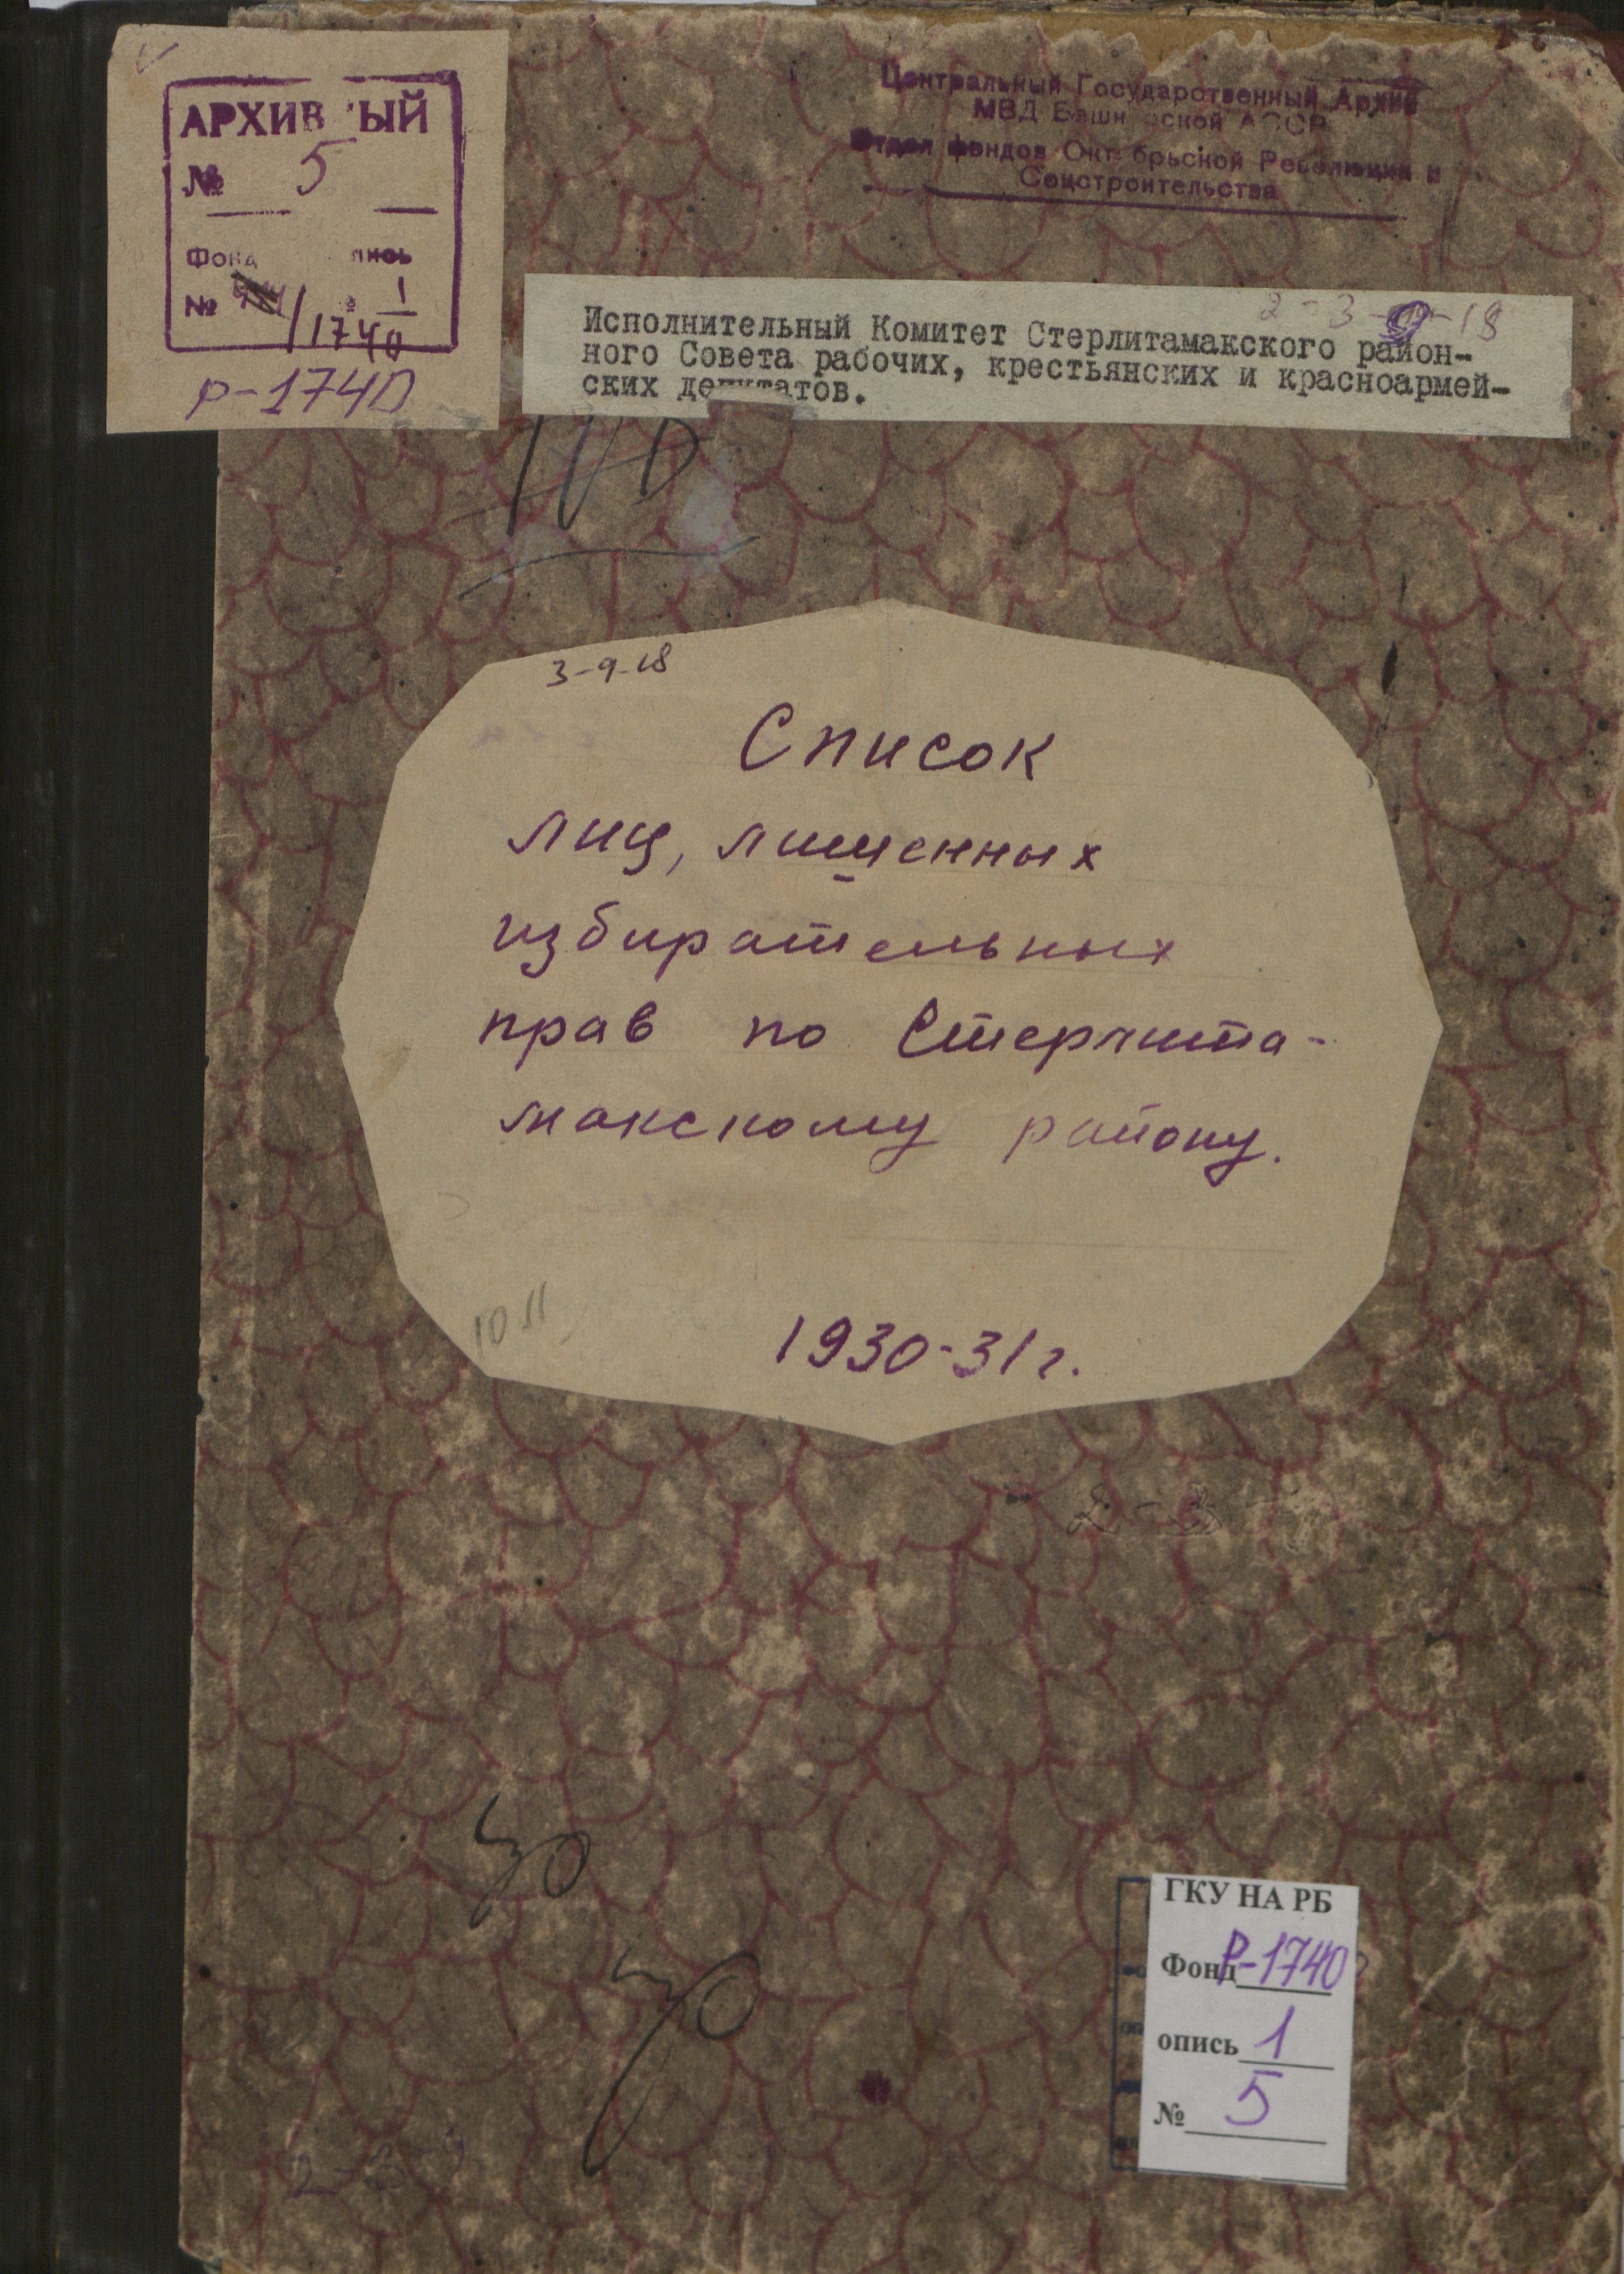 АРХИВ ЫЙ
№ 5
Фонд пись
№ 1
1740
р-1740
Центральный Государственный Архив
МВД Башк ской АССР
Отдел фондов Окт брьской Революции и
Соцстроительства
2-3-9-18
Исполнительный Комитет Стерлитамакского район-
ного Совета рабочих, крестьянских и красноармей-
ских депутатов.
3-9-18
Список
лиц, лишенных
избирательных
прав по Стерлита-
макскому району.
10 11
1930-31 г.
2-3
30
2-3 9
ГКУ НА РБ
Фонд Р-1740
опись 1
№ 5